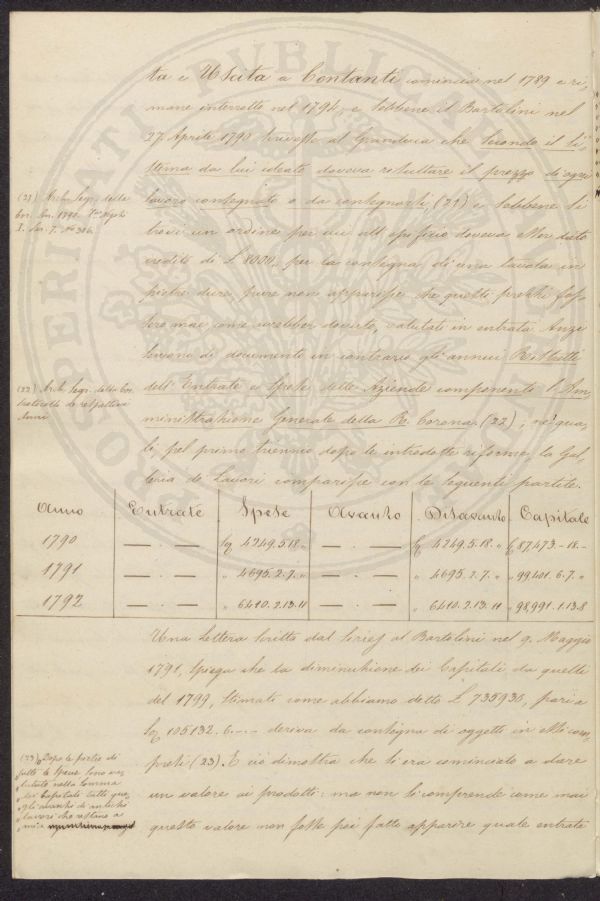 ta e Uscita a Contanti comincia nel 1789 e ri-
mane interrotto nel 1794, e sebbene il Bartolini nel
27 Aprile 1790 scrivesse al Granduca che secondo il si-
stema da lui ideato doveva resultare il prezzo d'ogni
lavoro consegnato o da consegnarsi (21) e sebbene si
trovi un ordine per cui all'opificio doveva esser dato
credito di £ 8000,, per la consegna di una tavola in
pietre dure, pure non apparisce che questi prezzi fos-
sero mai, come avrebber dovuto, valutati in entrata. Anzi
servono di documento in contrario gli annui Ristretti
dell'Entrate e Spese delle Aziende componenti l'Am-
ministrazione Generale della R. Corona (22), ne' qua-
li, pel primo triennio dopo le introdotte riforme, la Gal-
leria de' Lavori comparisce con le seguenti partite.
(21) Arch. Seg. della
I. Ins. 7. N° 306.
(22) Arch. Seg. della Cor.
Protocolli de' respettivi
Anni
Anno Entrate Spese Avanzo Disavanzo Capitale
1790 — . — 4249.5.18. „ — . — 4249.5.18. „ 87,473.-18.-
1791 — . — „ 4695.2.7. „ — . — „ 4695.2.7. „ „ 99,401.6.7. „
1792 — . — „ 6410.2.13.11 — . — „ 6410.2.13.11 „ 98,991.1.13.8
Una lettera scritta dal Siries al Bartolini nel 9. Maggio
1791, spiega che la diminuzione dei Capitali da quelli
del 1799, stimati come abbiamo detto £ 735936, pari a
105132.6.-- deriva da consegna di oggetti in essi com-
presi (23). E ciò dimostra che si era cominciato a dare
un valore ai prodotti: ma non si comprende come mai
questo valore non fosse poi fatto apparire quale entrata
(23) „ Dopo le partie di
„ tutte le spese sono va-
„ lutati nella somma
„ dei Capitali tutti que-
„ gli avanzi di antichi
„ lavori che restano a
PROSPERITATI PUBLICAE